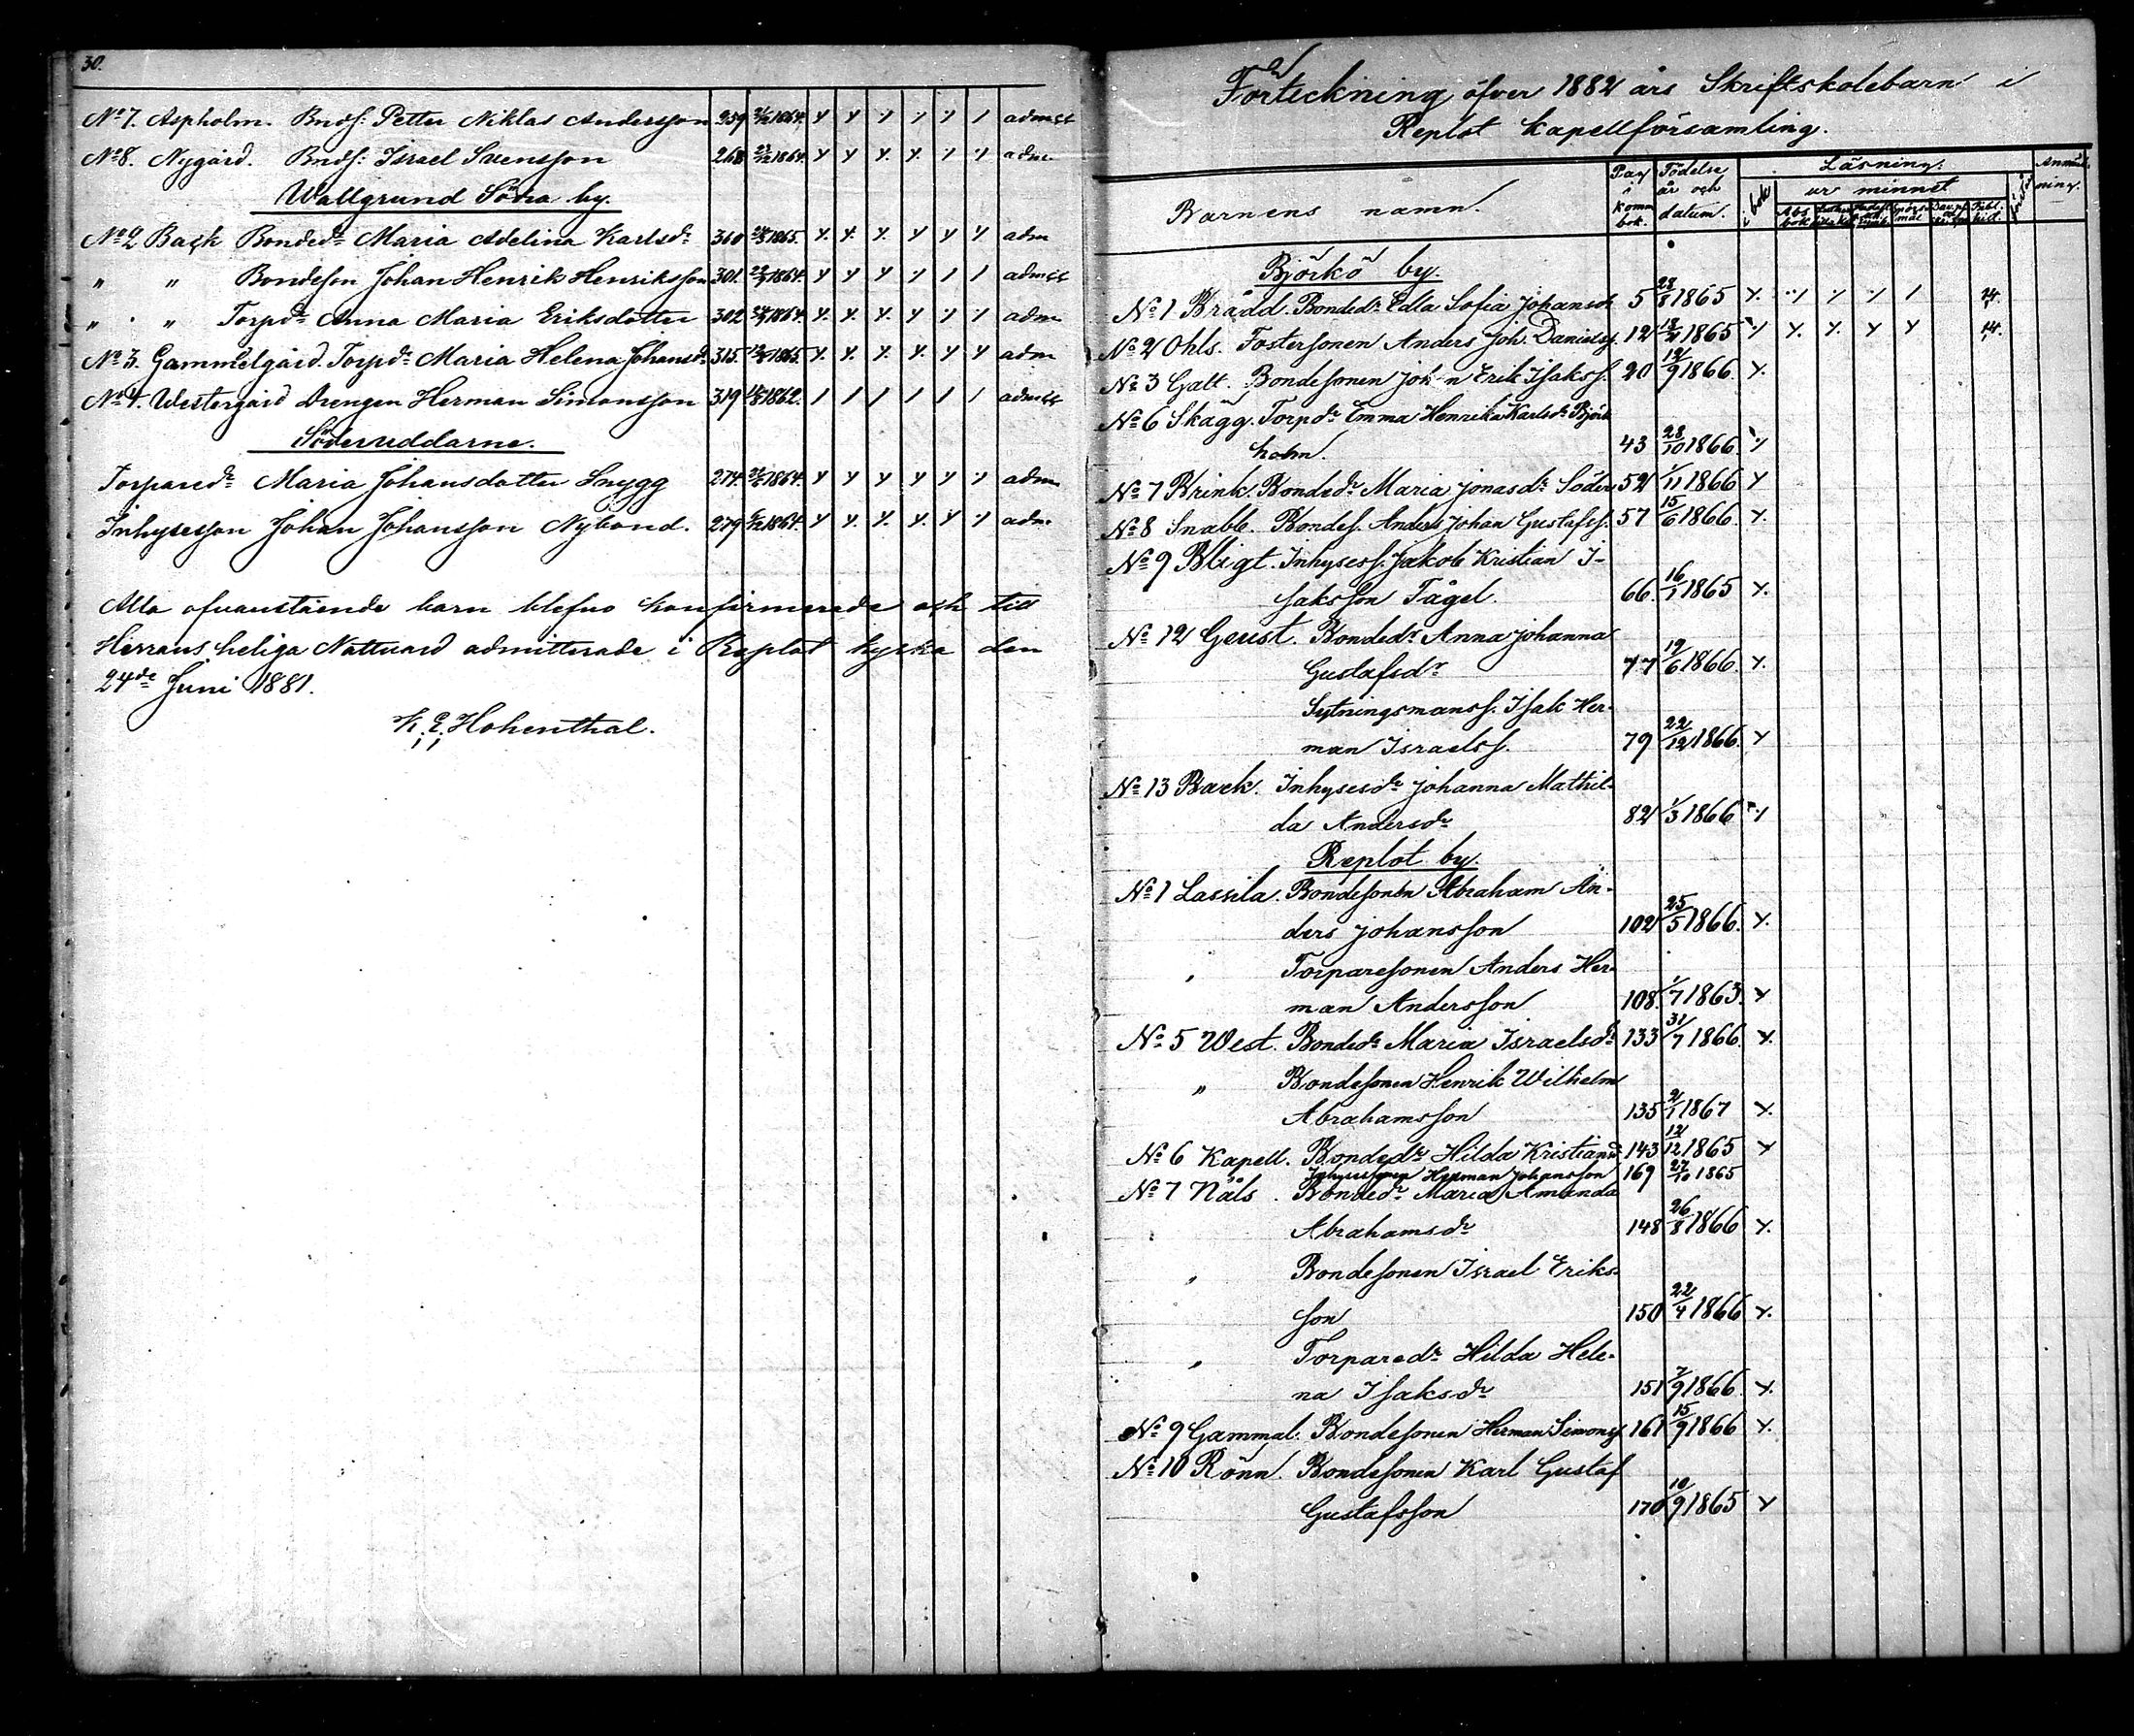 30.
No 7. Aspholm. Bndſ: Petter Niklas Andersson 259 1864. adm
No 8. Nygård. Bndſ: Israel Svensson 268 27/12 1864. adm.
Wallgrund Södra by.
No 2 Back Bonded:r Maria Adelina Karlsd:r 300 1865. adm
" " Bondeson Johan Henrik Henriksson 301. 1864. adm
" " Torpd:r Anna Maria Eriksdotter 302 1864. adm
No 3. Gammelgård. Torpd:r Maria Helena Johansd:r 315. 1865. adm
No 4. Westergård Drengen Herman Simonsson 319 1862. adm
Söderuddarne.
Torpared:r Maria Johansdotter Snygg 274. 1864. adm
Inhysesson Johan Johansson Nybond. 279 1864. adm.
Alla ofvanstående barn blefvo konfirmerade och till
Herrans heliga Nattvard admitterade i Replot kyrka den
24de Juni 1881.
K. E. Hohenthal.
Förteckning öfver 1882 års Skriftskolebarn i
Replot Kapellförsamling.
Barnens namn. Pag i komm bok. Födelse år och datum. Läsning. i bok ur minnet Anmärkning.
Björkö by.
No 1 Brådd. Bonded:r Edla Sofia Johansd:r 5 28/8 1865
No 2 Ohls. Fostersonen Anders Joh. Daniels. 12 1865
No 3 Galt. Bondesonen Joh n Erik Isakss. 20 12/9 1866.
No 6 Skägg. Torpd:r Emma Henrika Karlsd:r Björk
holm. 43 28/10 1866.
No 7 Brink. Bonded:r Maria Jonasd:r Söder 52 1/11 1866
No 8 Snabb. Bondes. Anders Johan Gustafss. 57 15/6 1866.
No 9 Bligt. Inhysess. Jakob Kristian I-
saksson Tågel. 66. 16/1 1865
No 12 Geust. Bonded:r Anna Johanna
Gustafsd:r 77 12/6 1866.
Sytningsmanss. Isak Her-
man Israelss. 79 22/12 1866.
No 13 Back. Inhysesd:r Johanna Mathil-
da Andersd:r 82 1/3 1866
Replot by.
No 1 Lassila. Bondesonen Abraham An-
ders Johansson 102 25/5 1866.
" Torparesonen Anders Her-
man Andersson 108. 1/7 1863.
No 5 West. Bonded:r Maria Israelsd:r 133 31/7 1866.
" Bondesonen Henrik Wilhelm
Abrahamsson 135 2/1 1867
No 6 Kapell. Bonded:r Hilda Kristiansd:r 143 12/12 1865
Inhysesonen Herman Johansson 169 27/10 1865
No 7 Nåls. Bonded:r Maria Amanda
Abrahamsd:r 148 26/8 1866
" Bondesonen Israel Eriks-
son 150 22/4 1866
" Torpared:r Hilda Hele-
na Isaksd:r 151 7/9 1866.
No 9 Gammal. Bondesonen Herman Simonss. 161 15/9 1866
No 10 Rönn. Bondesonen Karl Gustaf
Gustafsson 170 10/9 1865